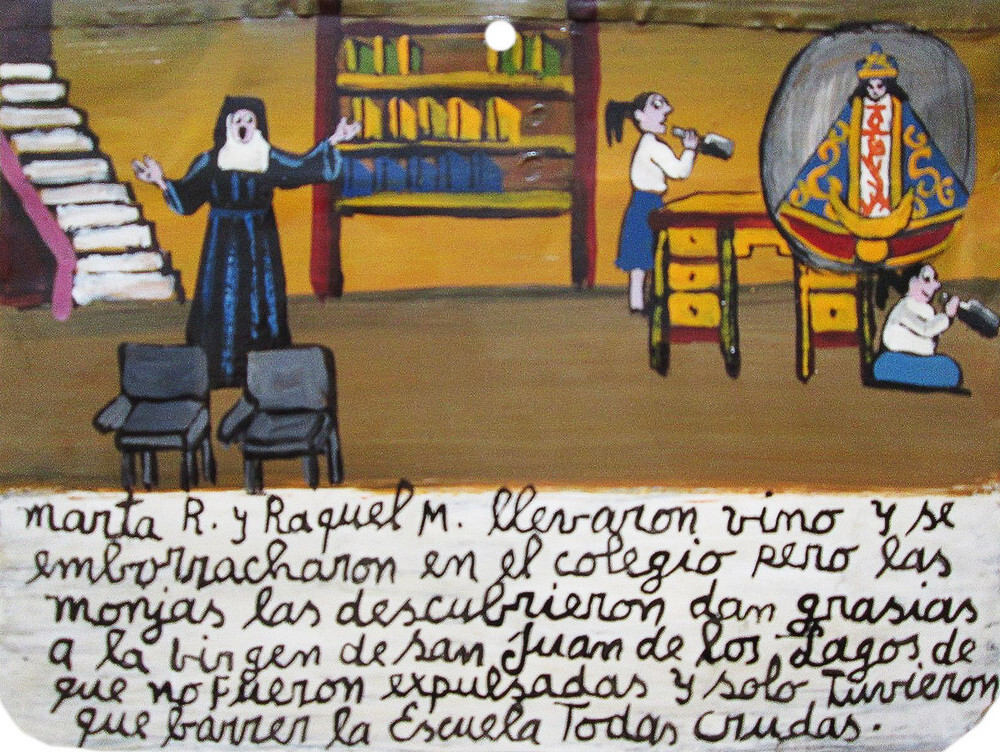 marta R. y Raquel M. llevaron vino y se
emborracharon en el colegio pero las
monjas las descubrieron dan grasias
a la birgen de san Juan de los Lagos de
que no fueron expulsadas y solo Tuvieron
que barrer la Escuela Todas Crudas.